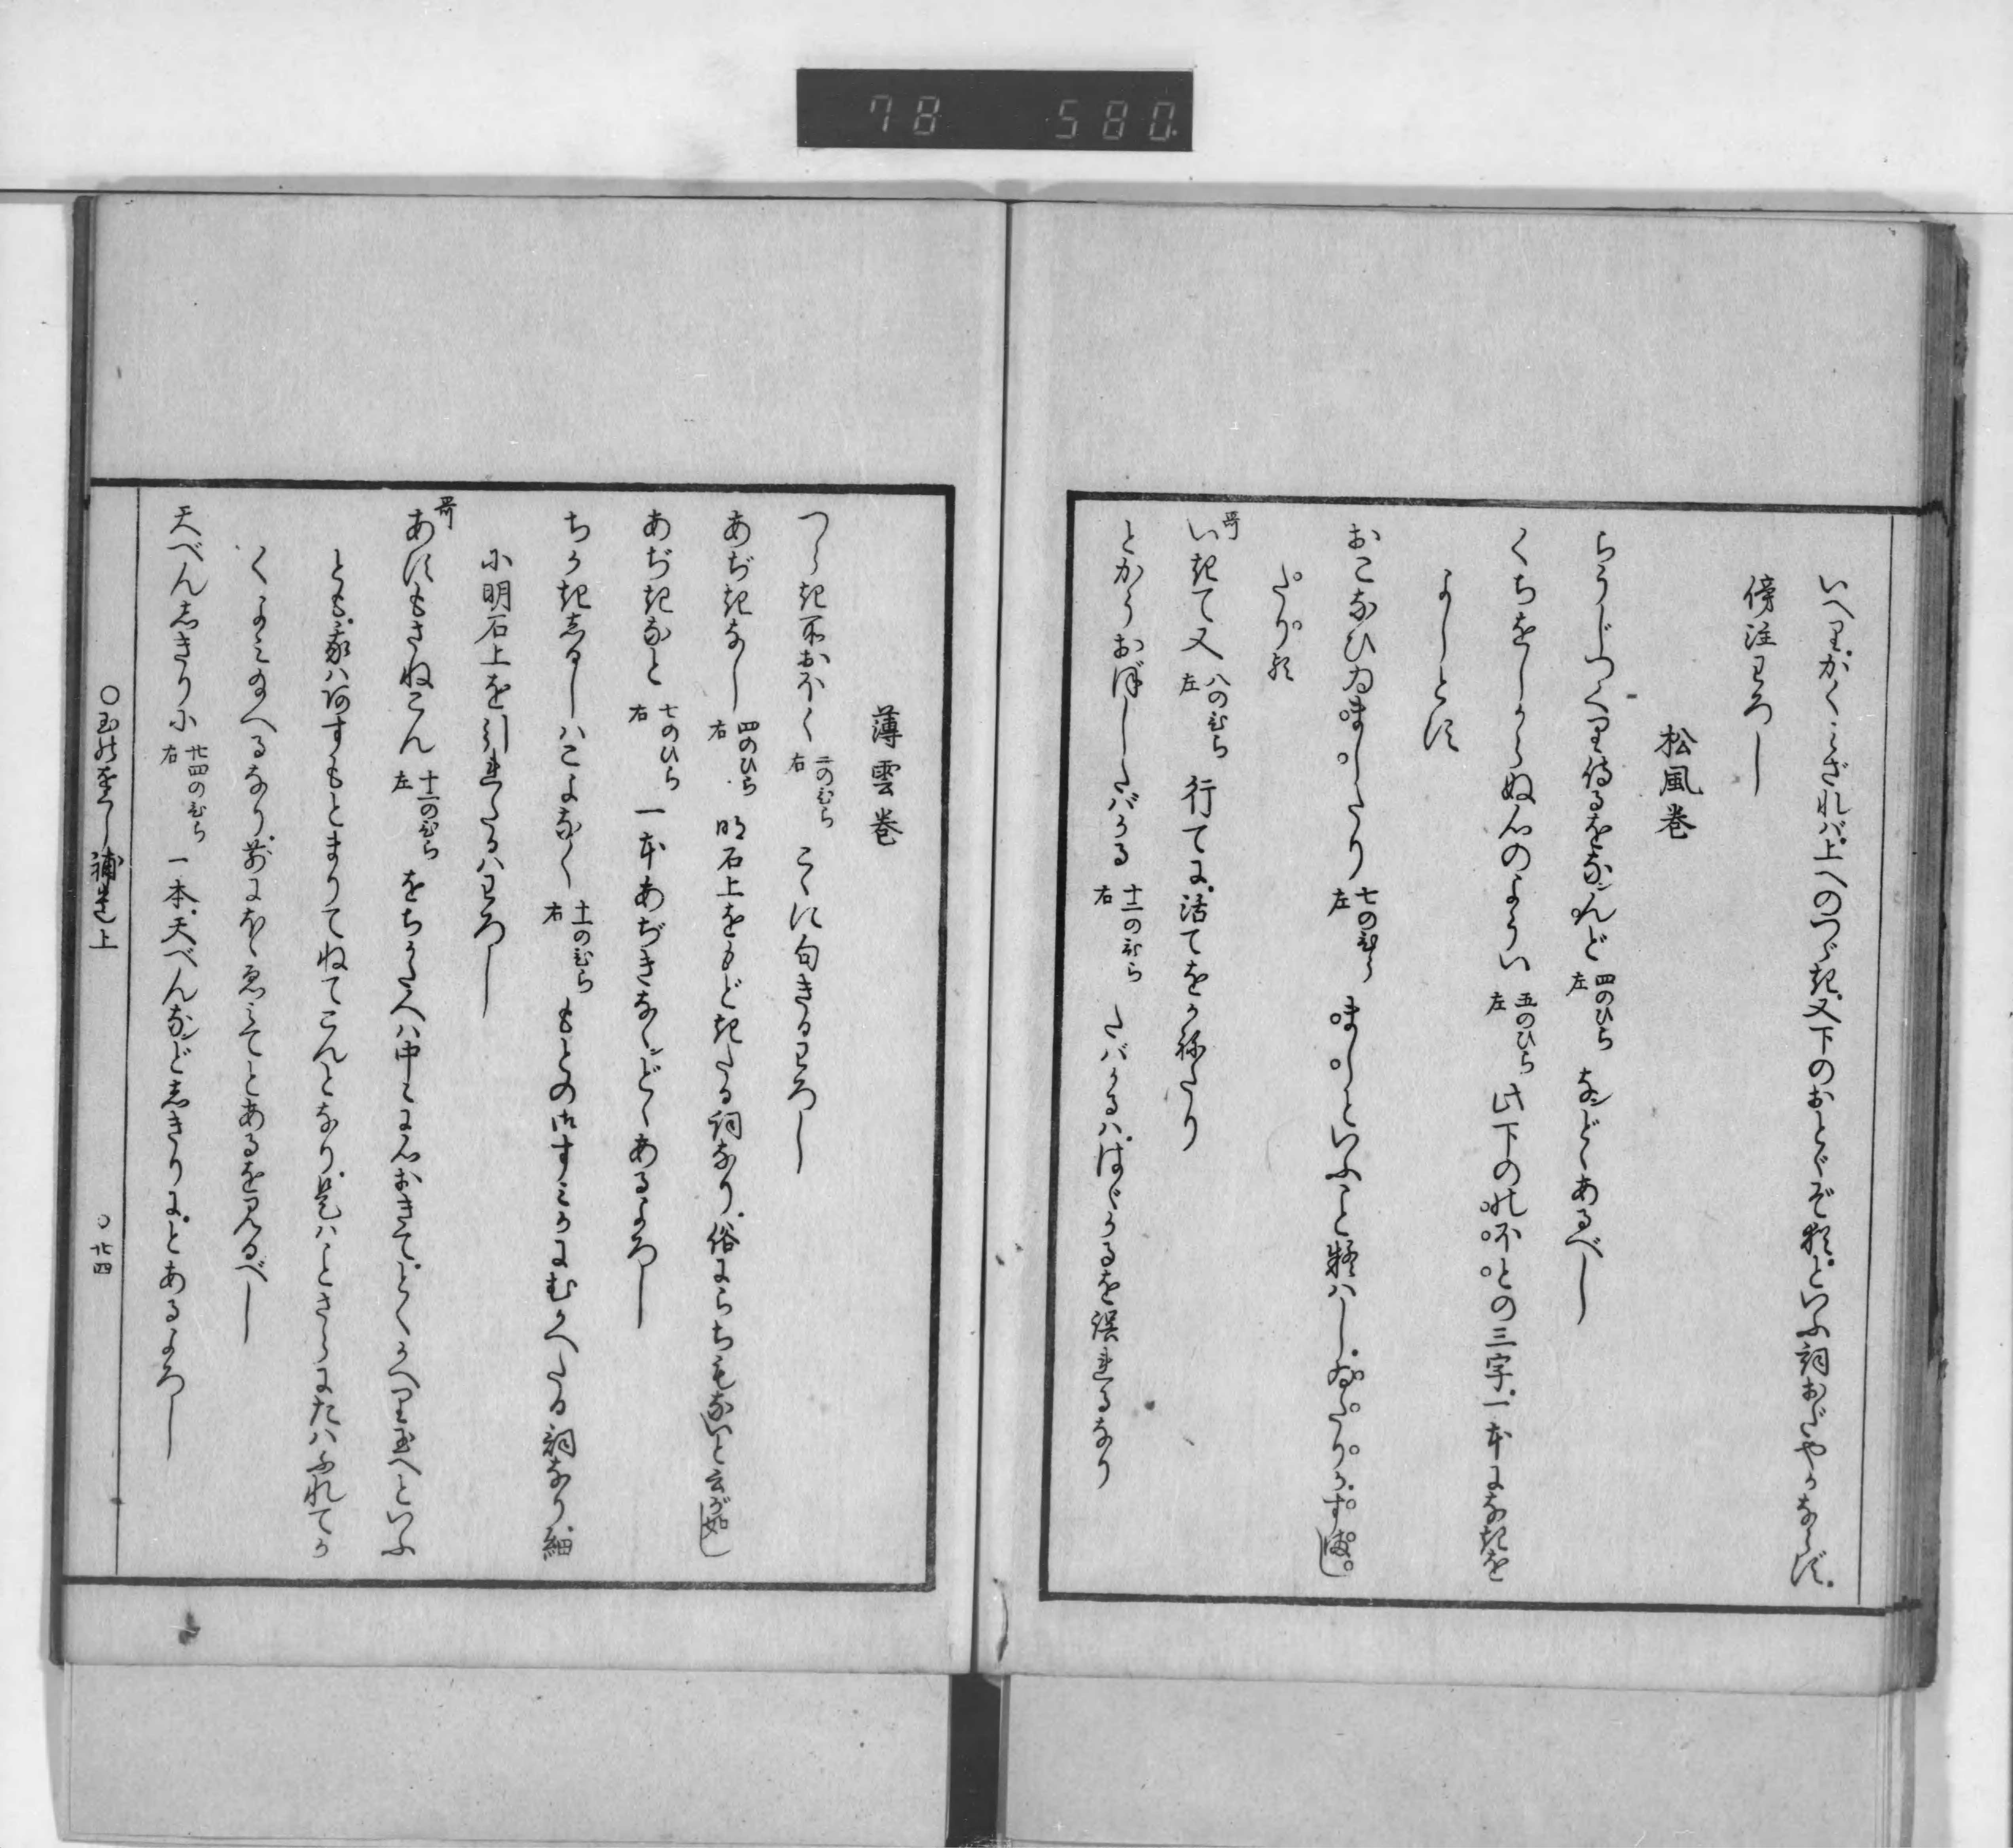 78 580
いへり。かくミざれバ。上へのつゞき。又下のおとゞぞ。猶。といふ詞おだやかならず。
傍注わろし
松風巻
らうじつくり侍るをなンど 四のひら左 なンどゝあるべし
くちをしからぬ心のようい 五のひら左 此下のれ不との三字。一本になきを
よしとす
おこなひゐましたり 七のひら左 ましといふこと疑ハし。ゐたりか。す
たりけ
哥 いきて又 八のひら左 行てに。活てをかねたり
とかうおぼしたバかる 十二のひら右 たバかるハ。はゞかるを誤れるなり
薄雲巻
つらき所おほく 二のひら右 こゝに句きるわろし
あぢきなし 四のひら右 明石上をもどきたる詞なり。俗にらちもないと云が如し
あぢきなと 七のひら右 一本あぢきなゝどゝあるよろし
ちかきしるしハこよなく 十一のひら右 もとの御すミかにむかへたる詞なり。細
小明石上を引れたるハわろし
哥 あすもさねこん 十一のひら左 をちかた人ハ中々に心おきて。とくかへり玉へといふ
とも。我ハあすもとまりてねてこんとなり。是ハことさらにたハふれてか
くよミ玉へるなり。前にほゝゑミてとあるを見るべし
天べんしきり小 廿四のひら右 一本。天べんなンどしきりに。とあるよろし
○玉のをくし補遺上 ○廿四